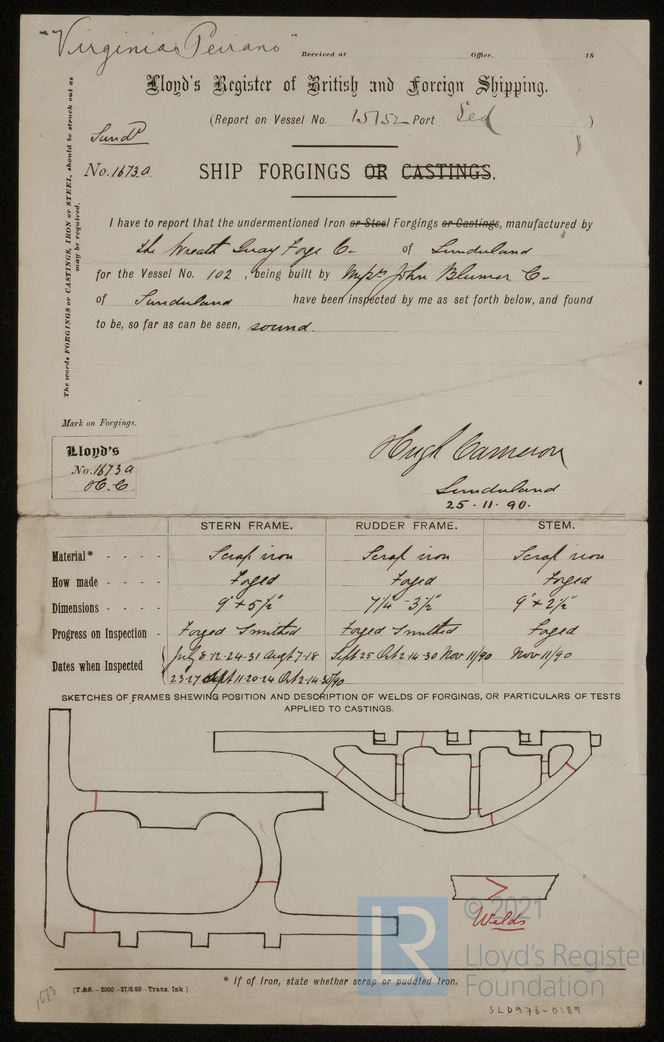 "Virginia Peirano"
Received at Office, 18
Lloyd's Register of British and Foreign Shipping.
(Report on Vessel No. 15152 Port Sld )
Sund^d
No. 1673a
SHIP FORGINGS OR CASTINGS.
The words FORGINGS or CASTINGS, IRON or STEEL, should be struck out as
may be required.
I have to report that the undermentioned Iron or Steel Forgings or Castings, manufactured by
the Wreath Quay Forge Co of Sunderland
for the Vessel No. 102, being built by Mess^rs John Blumer Co
of Sunderland have been inspected by me as set forth below, and found
to be, so far as can be seen, sound.
Mark on Forgings.
Lloyd's
No. 1673a
H.C.
Hugh Cameron
Sunderland
25.11.90.
STERN FRAME. RUDDER FRAME. STEM.
Material* - - - - Scrap iron Scrap iron Scrap iron
How made - - - - Forged Forged Forged
Dimensions - - - - 9" + 5½" 7¼ - 3½" 9" x 2½"
Progress on Inspection - Forged Smithed Forged Smithed Forged
Dates when Inspected July 8-12-24-31 Augt 7-18 Sept 25 Oct 2-14-30 Nov 11/90 Nov 11/90
23-27 Sept 11-20-24 Oct 2-14-30/90
SKETCHES OF FRAMES SHEWING POSITION AND DESCRIPTION OF WELDS OF FORGINGS, OR PARTICULARS OF TESTS
APPLIED TO CASTINGS.
Welds
* If of Iron, state whether scrap or puddled Iron.
[T.&S.—2000—27/3/89—Trans. Ink]
1673
LR
© 2021
Lloyd's Register
Foundation
SLD976-0189